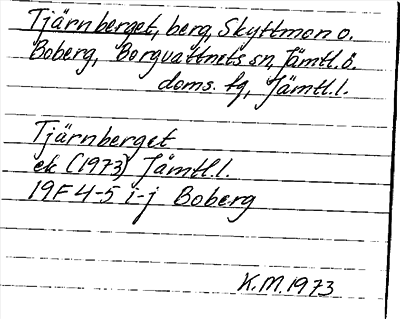 Tjärnberget, berg, Skyttmon o.
Boberg, Borgvattnets sn, Jämtl. ö.
doms. fg, Jämtl. l.
Tjärnberget
ek (1973) Jämtl. l.
19F 4-5 i-j Boberg
K.M. 1973